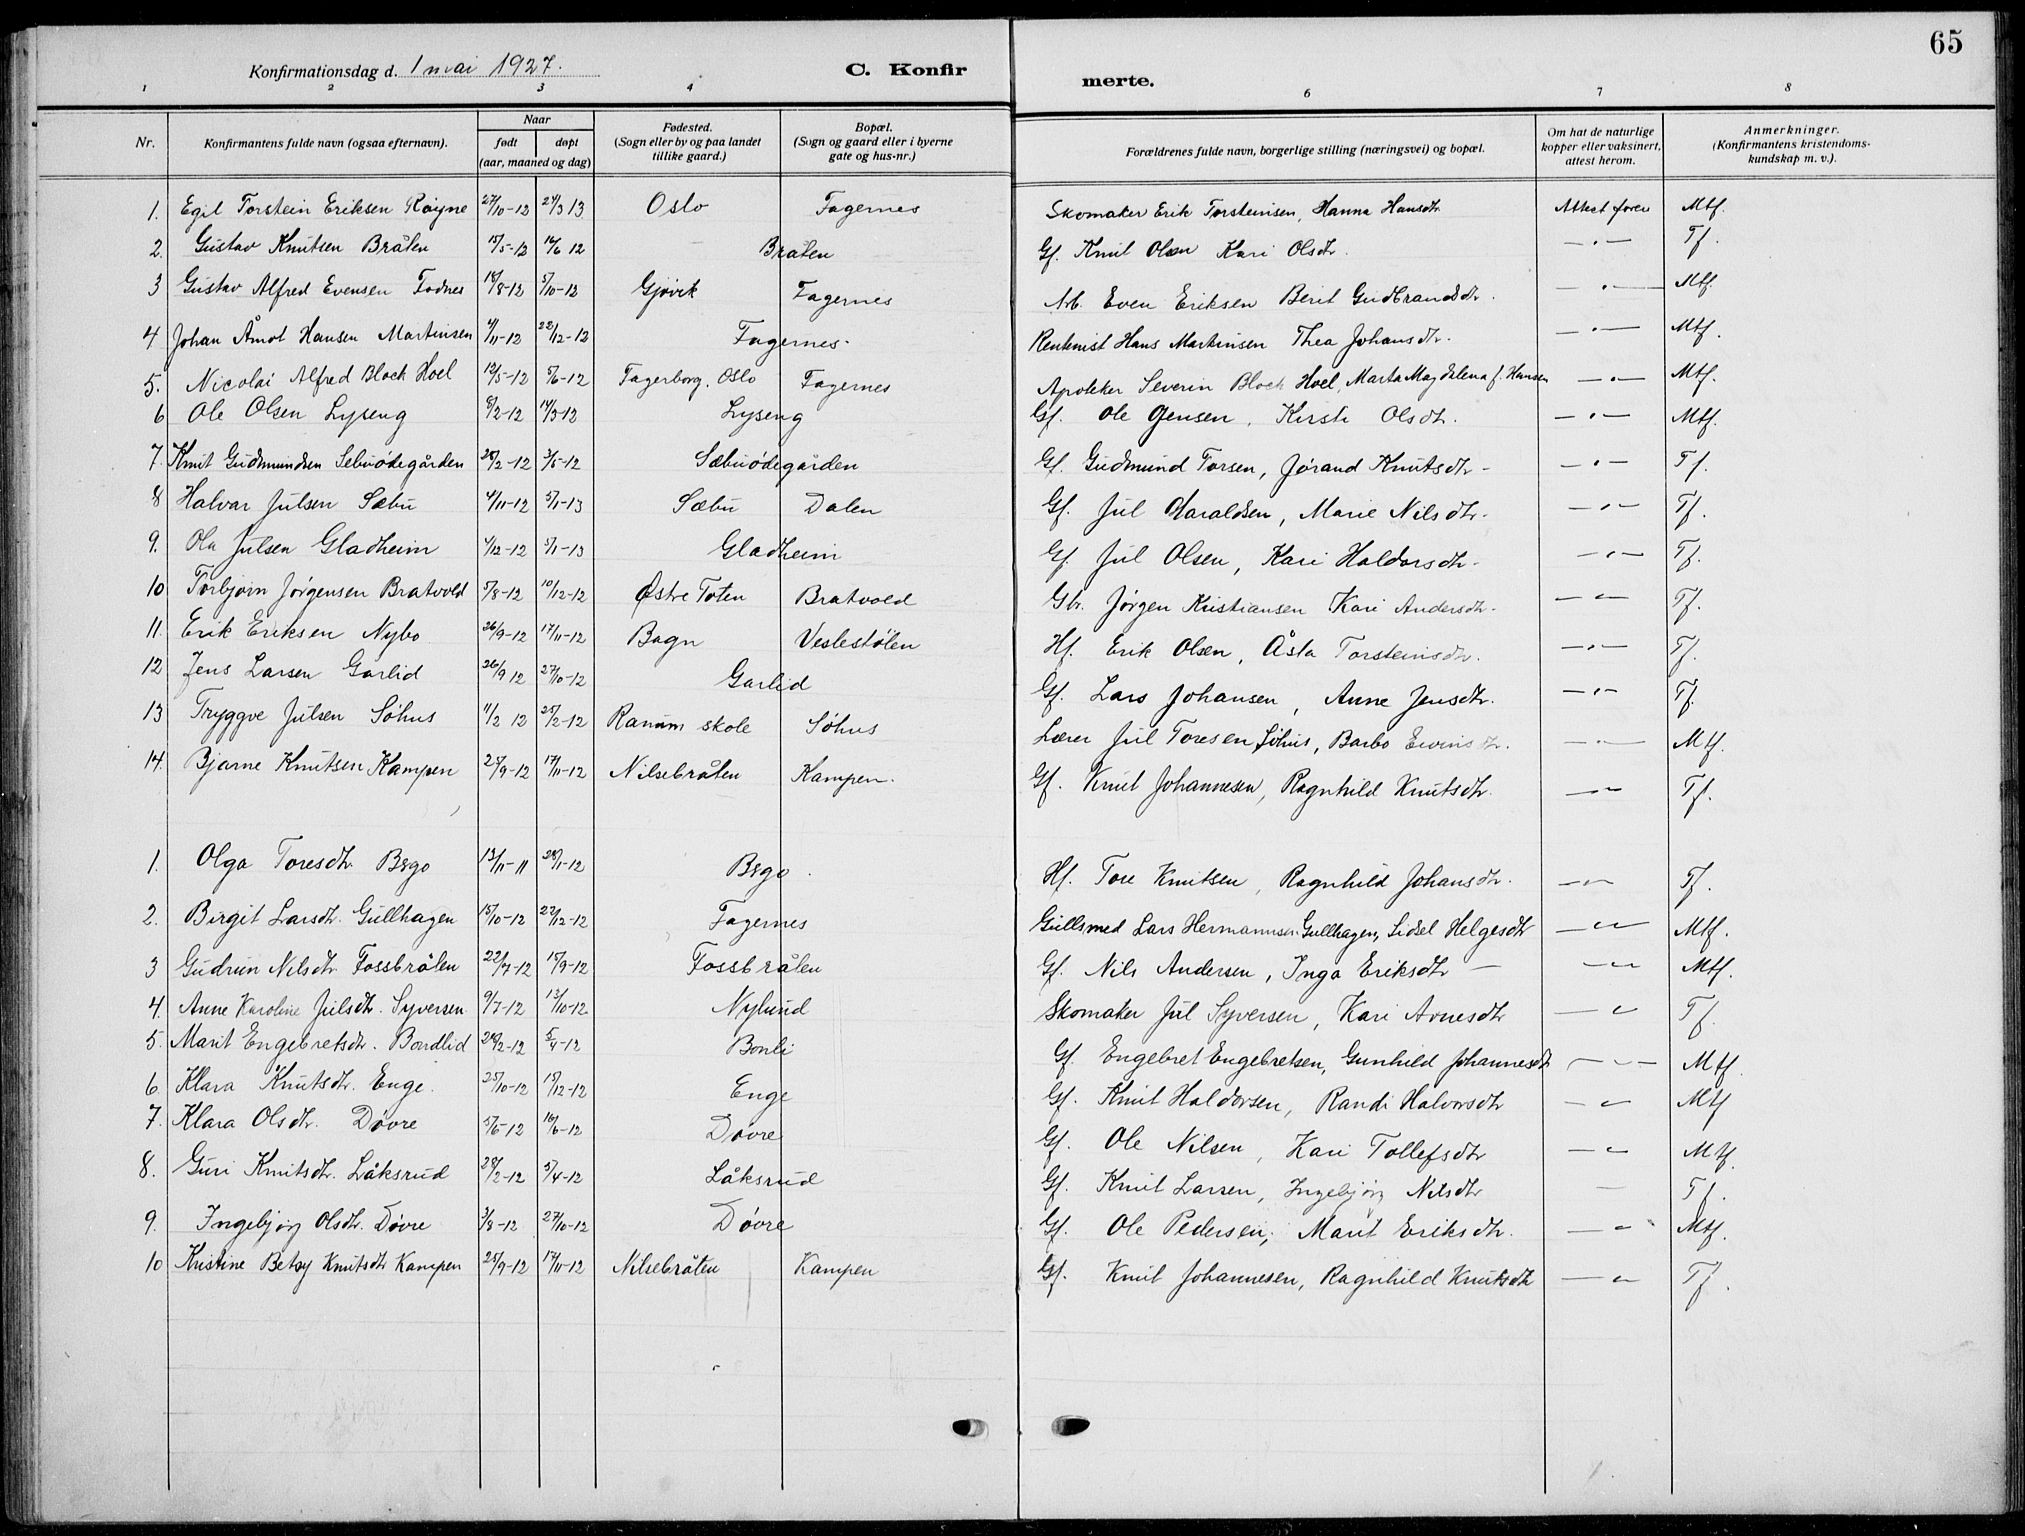 65
Konfirmationsdag d. 1 mai 1927. C. Konfir merte.
1 2 3 4 6 7 8
Nr. Konfirmantens fulde navn (ogsaa efternavn). Naar født døpt (aar, maaned og dag) Fødested. (Sogn eller by og paa landet tillike gaard.) Bopæl. (Sogn og gaard eller i byerne gate og hus-nr.) Forældrenes fulde navn, borgerlige stilling (næringsvei) og bopæl. Om hat de naturlige kopper eller vaksinert, attest herom. Anmerkninger. (Konfirmantens kristendoms-kundskap m. v.).
1. Egil Torstein Eriksen Røyne 27/10-12 24/3 13 Oslo Fagernes Skomaker Erik Torsteinsen, Hanna Hansdtr Attest forev Mtf.
2. Gustav Knutsen Bråten 15/5-12 16/6 12 Bråten Gf. Knut Olsen Kari Olsdtr. — " — Tf.
3 Gustav Alfred Evensen Fodnes 18/8-12 5/10-12 Gjøvik Fagernes Arb. Even Eriksen Berit Gudbrandsdtr. — " — Mtf.
4 Johan Åmot Hansen Martinsen 4/11-12 22/12-12 Fagernes. Hans Martinsen Thea Johansdtr. — " — Mtf.
5. Nicolai Alfred Block Hoel 12/5-12 5/6-12 Fagerborg. Oslo Fagernes Apoteker Severin Block Hoel, Marta Magdalena f. Hansen — " — Mtf.
6 Ole Olsen Lyseng 8/2-12 14/3-12 Lyseng Gf. Ole Jensen, Kirsti Olsdtr. — " — Mtf.
7. Knut Gudmundsen Sebuødegården 28/2-12 3/5-12 Sæbuødegården Gf. Gudmund Torsen, Jørand Knutsdtr — " — Tf.
8 Halvar Julsen Sæbu 4/11-12 5/1-13 Sæbu Dalen Gf. Jul Haraldsen, Marie Nilsdtr. — " — Tf.
9. Ola Julsen Gladheim 4/12-12 5/1-13 Gladheim Gf. Jul Olsen, Kari Haldorsdtr. — " — Tf.
10 Torbjørn Jørgensen Bratvold 5/8-12 10/12-12 Østre Toten Bratvold Gbr. Jørgen Kristiansen Kari Andersdtr. — " — Tf.
11. Erik Eriksen Nybo 26/9-12 17/11-12 Bagn Veslestølen Hf. Erik Olsen, Åsta Torsteinsdtr. — " — Tf.
12 Jens Larsen Garlid 26/9 12 27/10-12 Garlid Gf. Lars Johansen, Anne Jensdtr. — " — Tf.
13 Tryggve Julsen Søhus 11/2 12 25/2-12 Ranum skole Søhus Lærer Jul Toresen Søhus, Barbo — " — Mtf.
14. Bjarne Knutsen Kampen 25/9-12 17/11-12 Nilsebråten Kampen. Gf. Knut Johannesen, Ragnhild Knutsdtr. — " — Tf.
1. Olga Toresdtr. Bergo 13/11-11 28/1-12 Bergo. Hf. Tore Knutsen, Ragnhild Johansdtr. — " — Tf.
2. Birgit Larsdtr. Gullhagen 15/10-12 22/12-12 Fagernes Gullsmed Lars Hermannsen Gullhagen, Sidsel Helgesdtr — " — Mtf.
3 Gudrun Nilsdtr Fossbråten 22/7-12 15/9-12 Fossbråten Gf. Nils Andersen, Inga Eriksdtr — — " — Mtf.
4. Anne Karoline Julsdtr. Syversen 9/7-12 13/10-12 Nylund Skomaker Jul Syversen, Kari Arnesdtr — " Tf.
5. Marit Engebretsdtr. Bondlid 28/2-12 5/4-12 Bonli Gf. Engebret Engebretsen, Gunhild Johannesdtr — " — Mtf.
6. Klara Knutsdtr. Enge. 25/10-12 15/12-12 Enge Gf. Knut Haldorsen, Randi Halvorsdtr — " Mtf
7. Klara Olsdtr. Døvre 5/5-12 16/6-12 Døvre Gf. Ole Nilsen, Kari Tollefsdtr — " Mtf.
8. Guri Knutsdtr. Låksrud 28/2-12 5/4-12 Låksrud Gf. Knut Larsen, Ingebjørg Nilsdtr — Tf.
9. Ingebjørg Olsdtr. Døvre 3/8-12 27/10-12 Døvre Gf. Ole Pedersen, Marit Eriksdtr. — " Mtf.
10 Kristine Betsy Knutsdtr Kampen 25/9-12 17/11-12 Nilsebråten Kampen Gf. Knut Johannesen, Ragnhild Knutsdtr — " Tf.